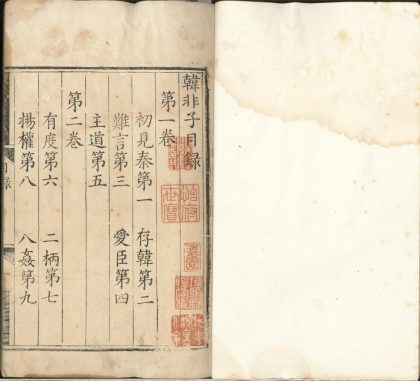 韓非子目録
第一卷
初見秦第一　存韓第二
難言第三　愛臣第四
主道第五
第二卷
有度第六　二柄第七
楊權第八　八姦第九
目録